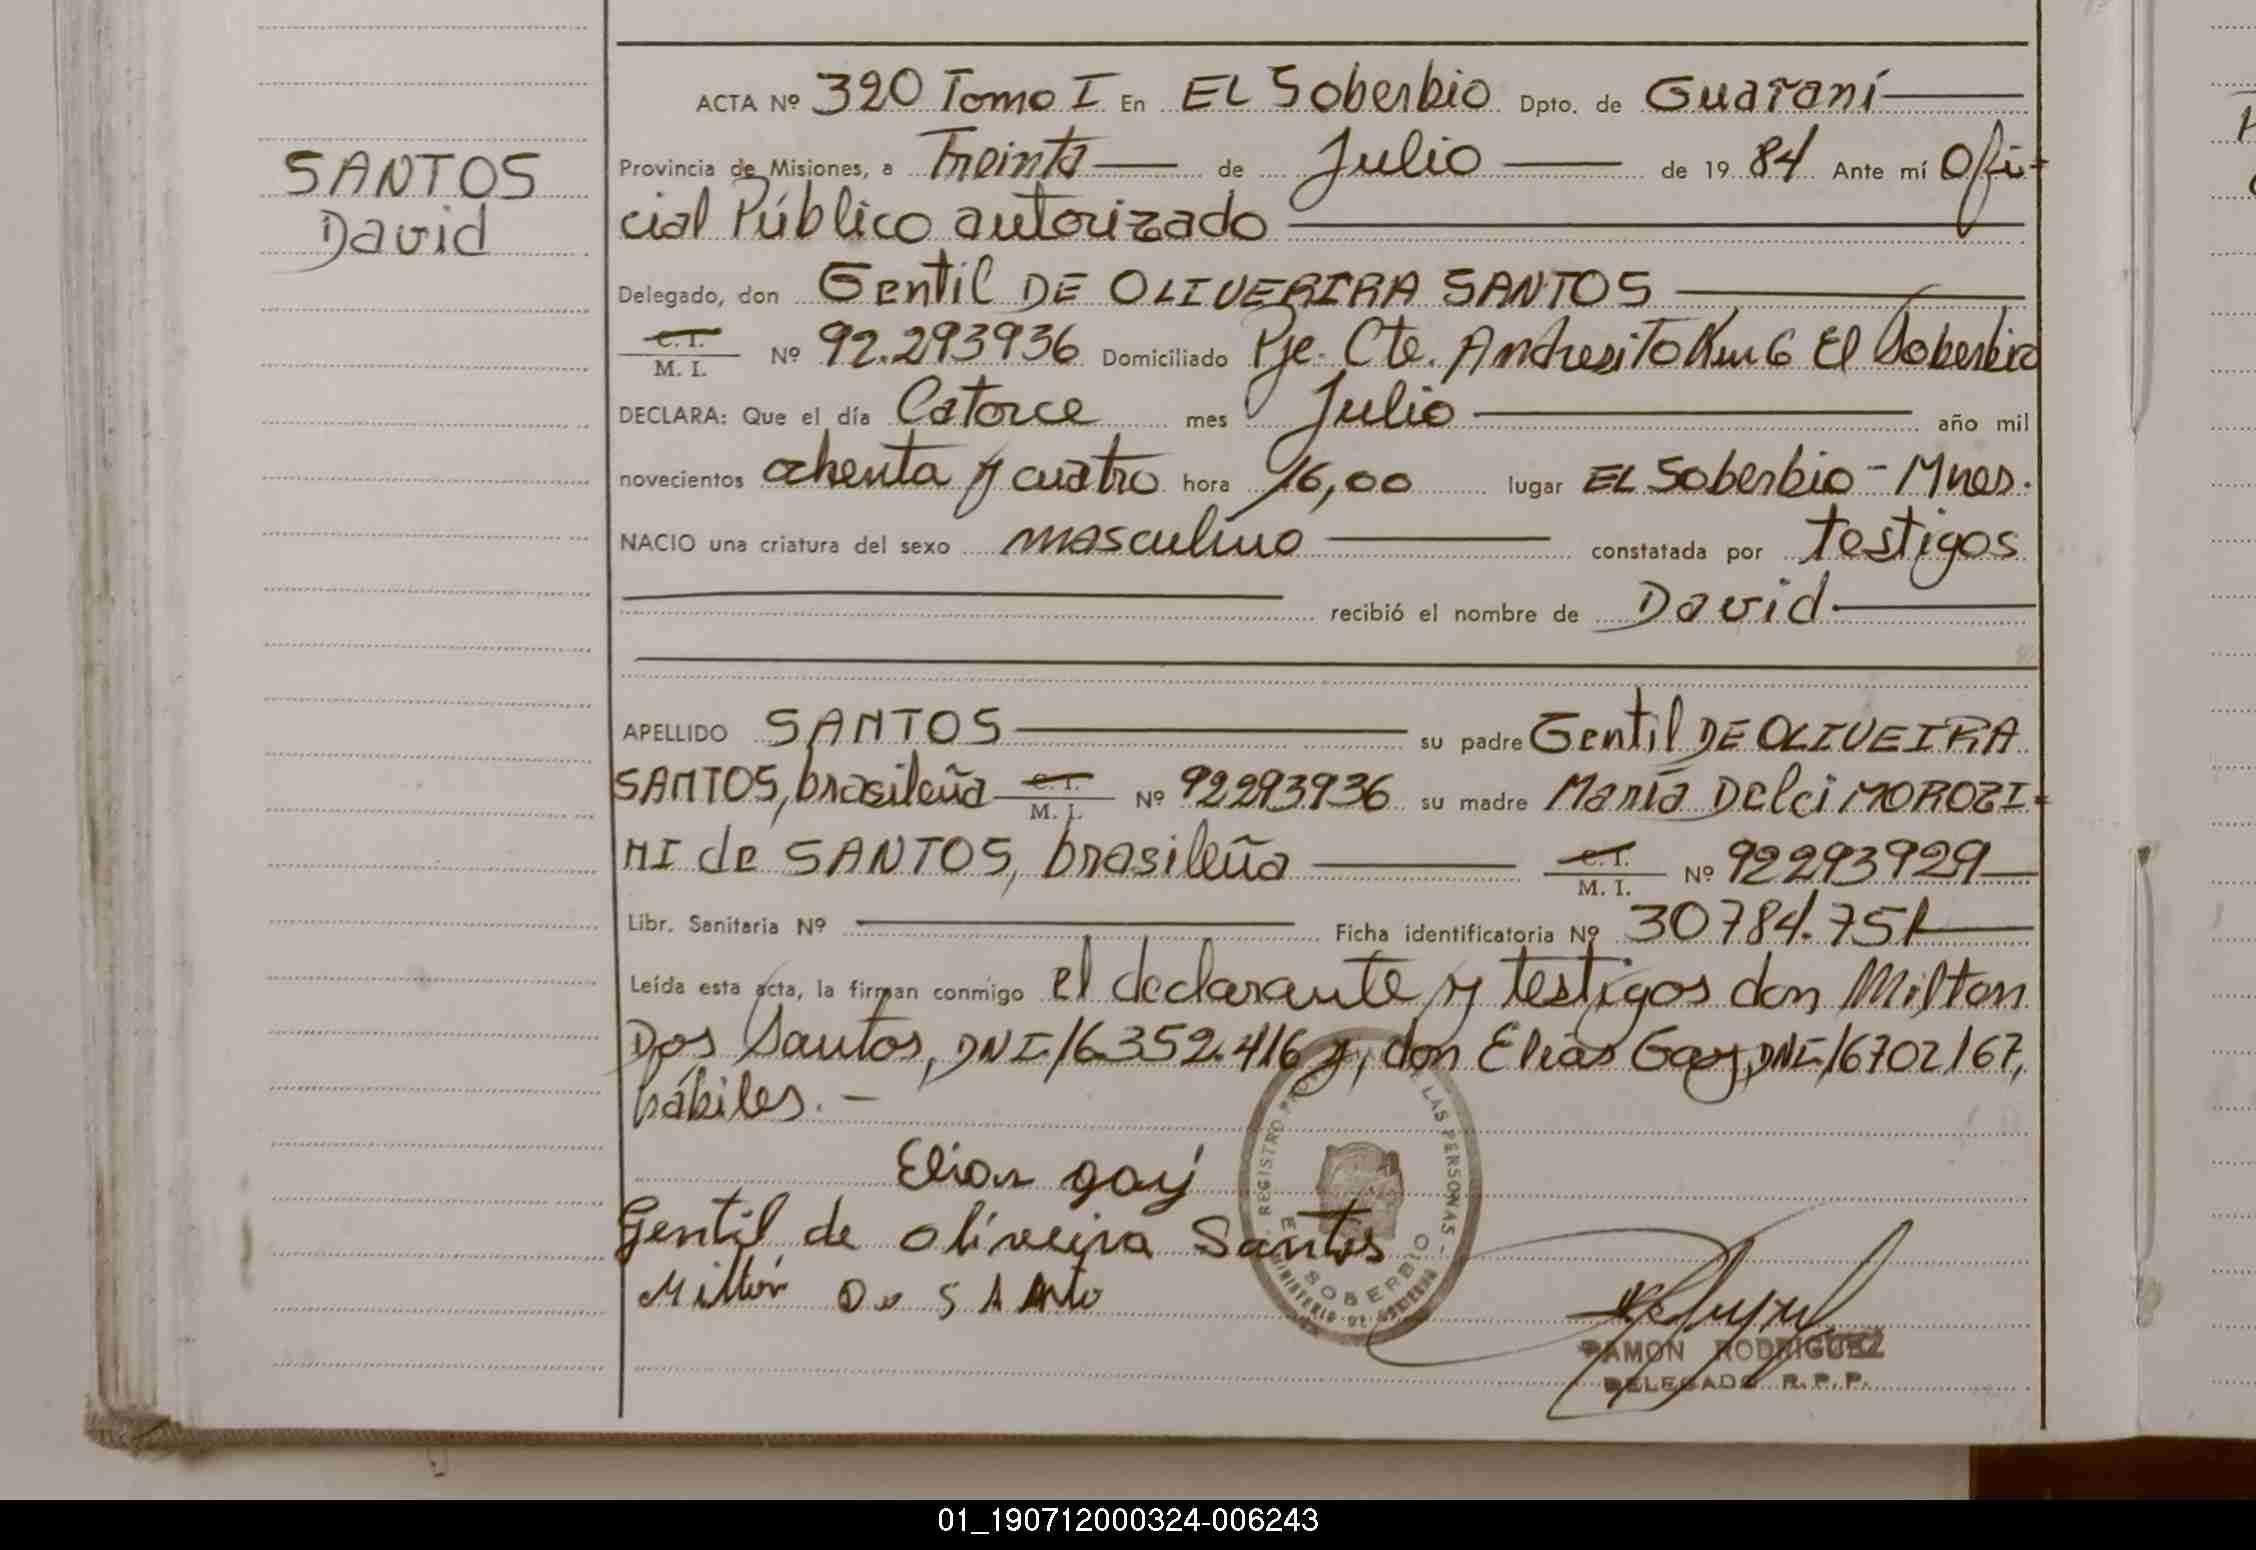 SANTOS
David
ACTA Nº 320 Tomo I En EL Soberbio Dpto. de Guaraní
Provincia de Misiones, a Treinta de Julio de 1984 Ante mí Ofi-
cial Público autorizado
Delegado, don Gentil DE OLIVERIRA SANTOS
C. I.
M. I. Nº 92.293936 Domiciliado Pje. Cte. Andresito Km 6 El Soberbio
DECLARA: Que el día Catorce mes Julio año mil
novecientos ochenta y cuatro hora 16,00 lugar EL Soberbio - Mnes.
NACIO una criatura del sexo masculino constatada por testigos
recibió el nombre de David
APELLIDO SANTOS su padre Gentil DE OLIVEIRA
SANTOS, brasileña C. I. M. I. Nº 92293936 su madre María Delci MOROZI-
NI de SANTOS, brasileña C. I. M. I. Nº 92293929
Libr. Sanitaria Nº Ficha identificatoria Nº 30784.751
Leída esta acta, la firman conmigo el declarante y testigos don Milton
Dos Santos, DNI 16.352.416 y, don Elías Gay, DNI 16702167,
hábiles. -
Elias gay
Gentil de oliveira Santos
Milton Do SAnto
REGISTRO LAS PERSONAS -
EL SOBERBIO
MINISTERIO DE GOBIERNO
RAMON RODRIGUEZ
DELEGADO R. P. P.
01_190712000324-006243